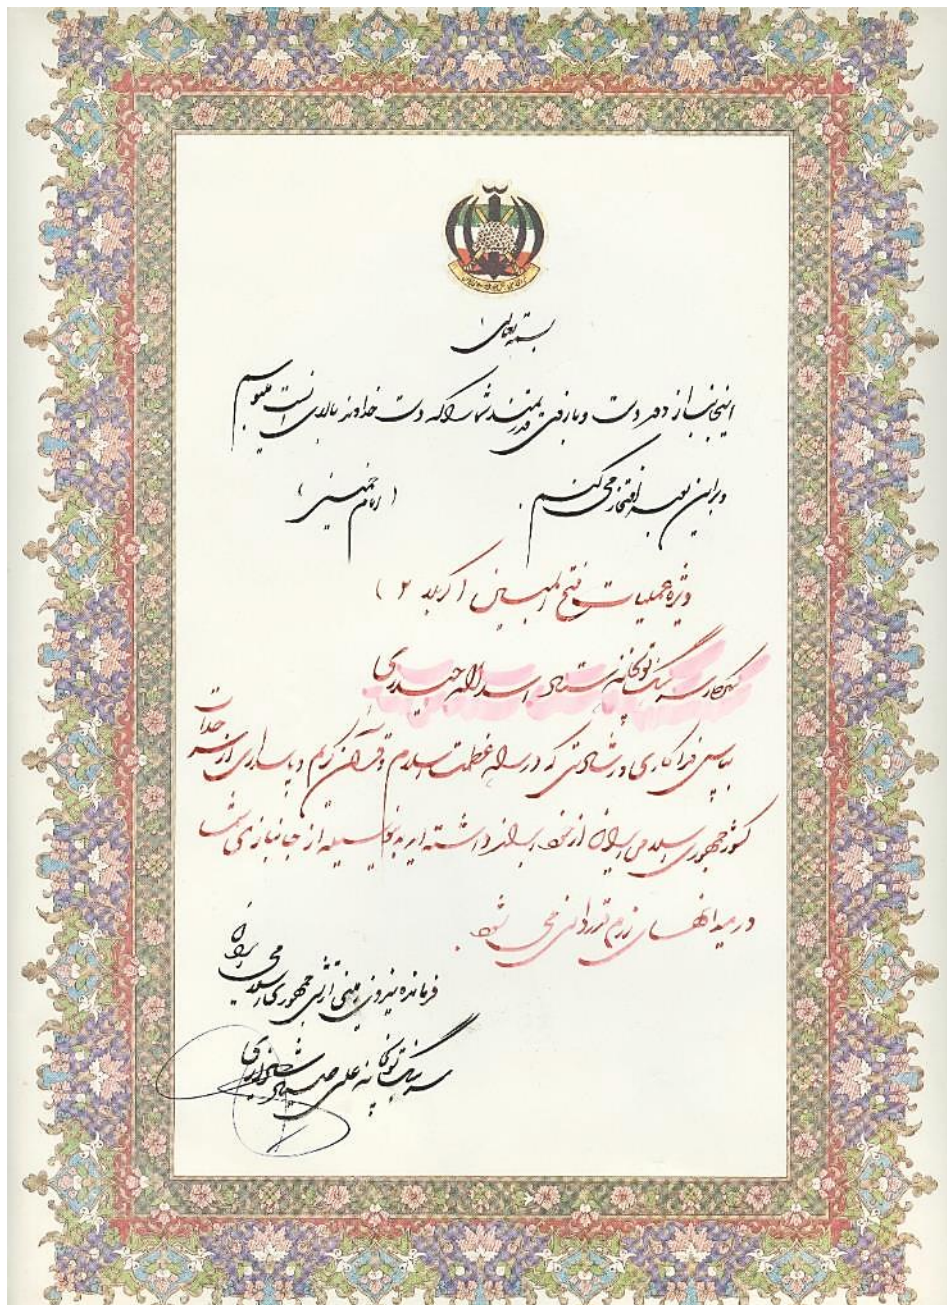 بسمه تعالی
اینجانب از دور دست و بازوی قدرتمند شما را که دست خداوند بالای آن است میبوسم
و براین بوسه افتخار می کنم. (امام خمینی)
ویژه عملیات فتح المبین (کربلا ۲)
سرهنگ توپخانه ستاد اسداله حیدری
بپاس فداکاری و رشادتی که در راه عظمت اسلام و قرآن کریم و پاسداری از
کشور جمهوری اسلامی ایران از خود ابراز داشته اید بدینوسیله از جانبازی شما
در میدانهای رزم قدردانی می شود.
فرمانده نیروی زمینی ارتش جمهوری اسلامی ایران
سرهنگ توپخانه علی صیاد شیرازی